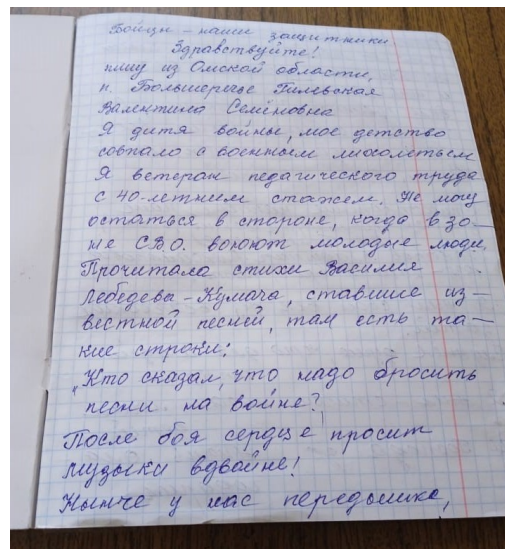 Бойцы – наши защитники
Здравствуйте!
пишу из Омской области,
п. Большеречье Гилевская
Валентина Семёновна
Я дитя войны, моё детство
совпало с военным лихолетьем
Я ветеран педагогического труда
с 40-летним стажем. Не могу
остаться в стороне, когда в зо-
не СВО. воюют молодые люди.
Прочитала стихи Василия
Лебедева-Кумача, ставшие из-
вестной песней, там есть та-
кие строки:
„Кто сказал, что надо бросить
песни на войне?
После боя сердце просит
музыки вдвойне!
Нынче у нас передышка,